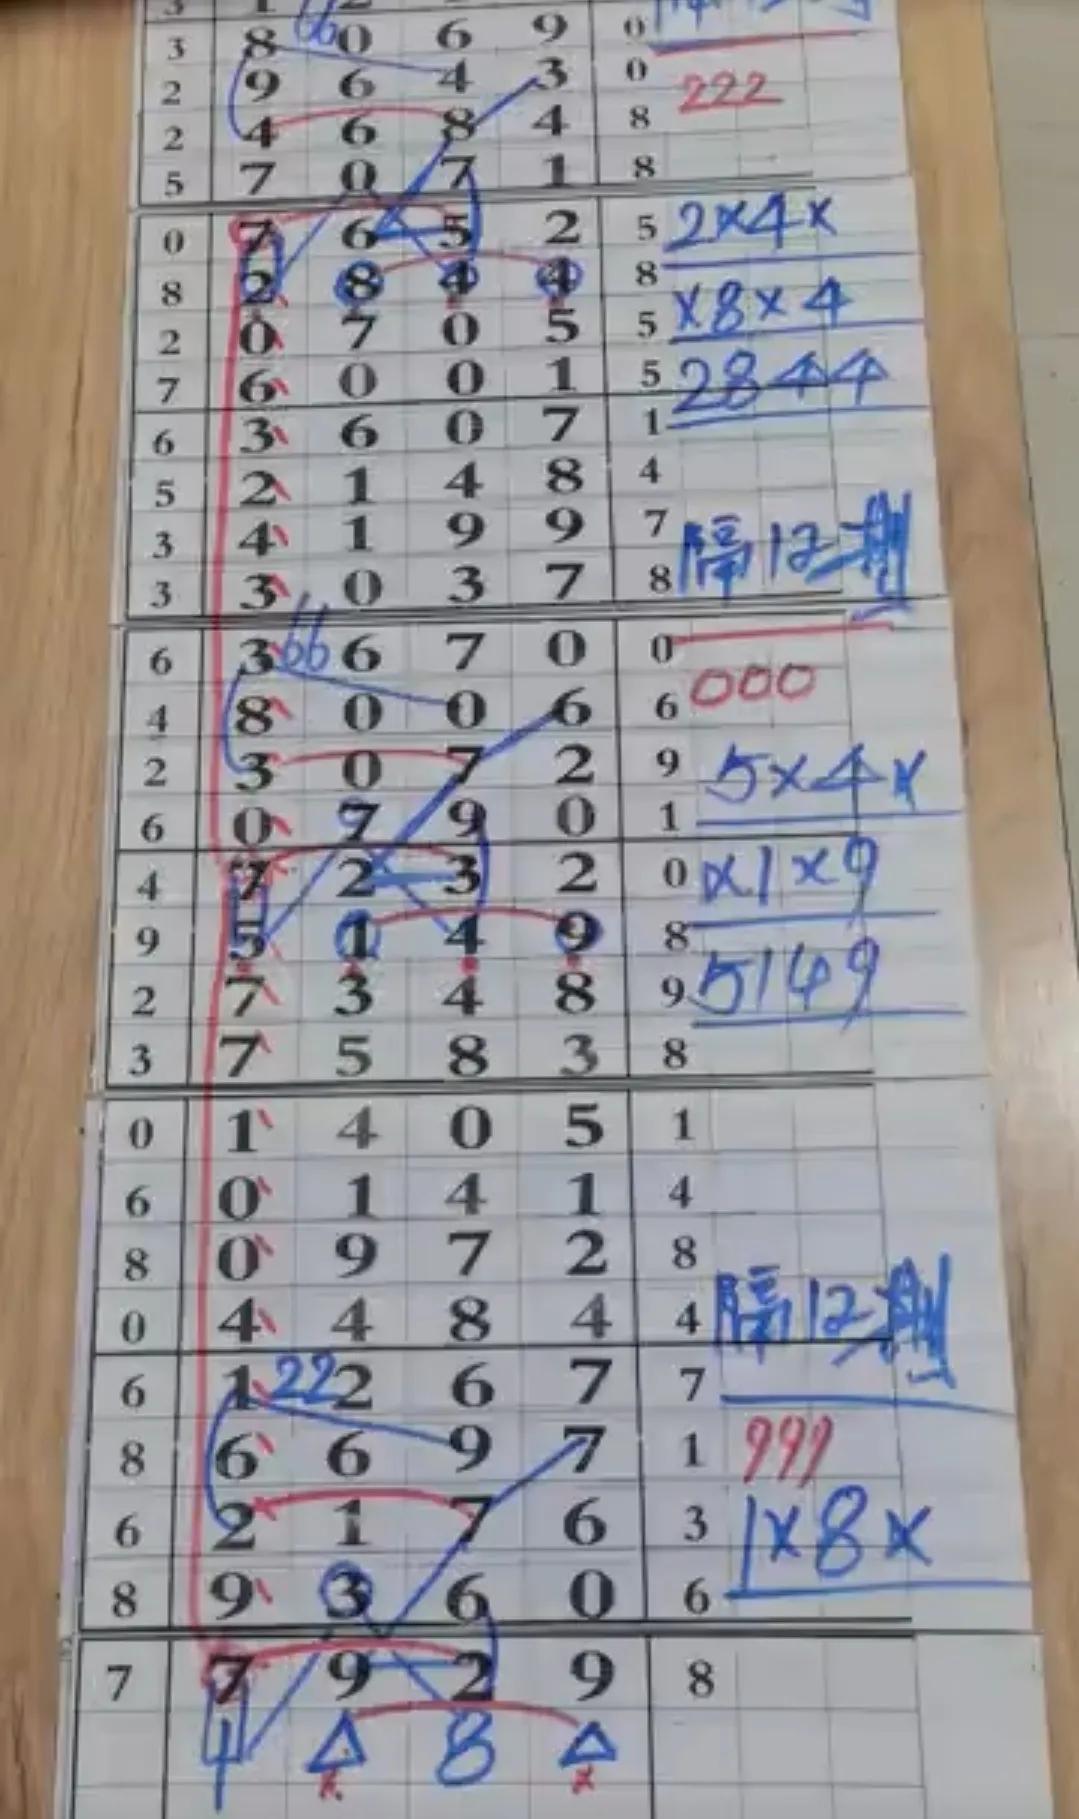 3 8 66 0 6 9 0
2 9 6 4 3 0 222
2 4 6 8 4 8
5 7 0 7 1 8
0 7 6 5 2 5 2×4×
8 2 8 4 4 8
2 0 7 0 5 5 ×8×4
7 6 0 0 1 5 2844
6 3 6 0 7 1
5 2 1 4 8 4
3 4 1 9 9 7 隔12
3 3 0 3 7 8
6 3 66 6 7 0 0 000
4 8 0 0 6 6
2 3 0 7 2 9 5×4×
6 0 7 9 0 1
4 7 2 3 2 0 ×1×9
9 5 1 4 9 8
2 7 3 4 8 9 5149
3 7 5 8 3 8
0 1 4 0 5 1
6 0 1 4 1 4
8 0 9 7 2 8
0 4 4 8 4 4 隔12
6 1 22 2 6 7 7
8 6 6 9 7 1 999
6 2 1 7 6 3 1×8×
8 9 3 6 0 6
7 7 9 2 9 8
4 △ 8 △
x x